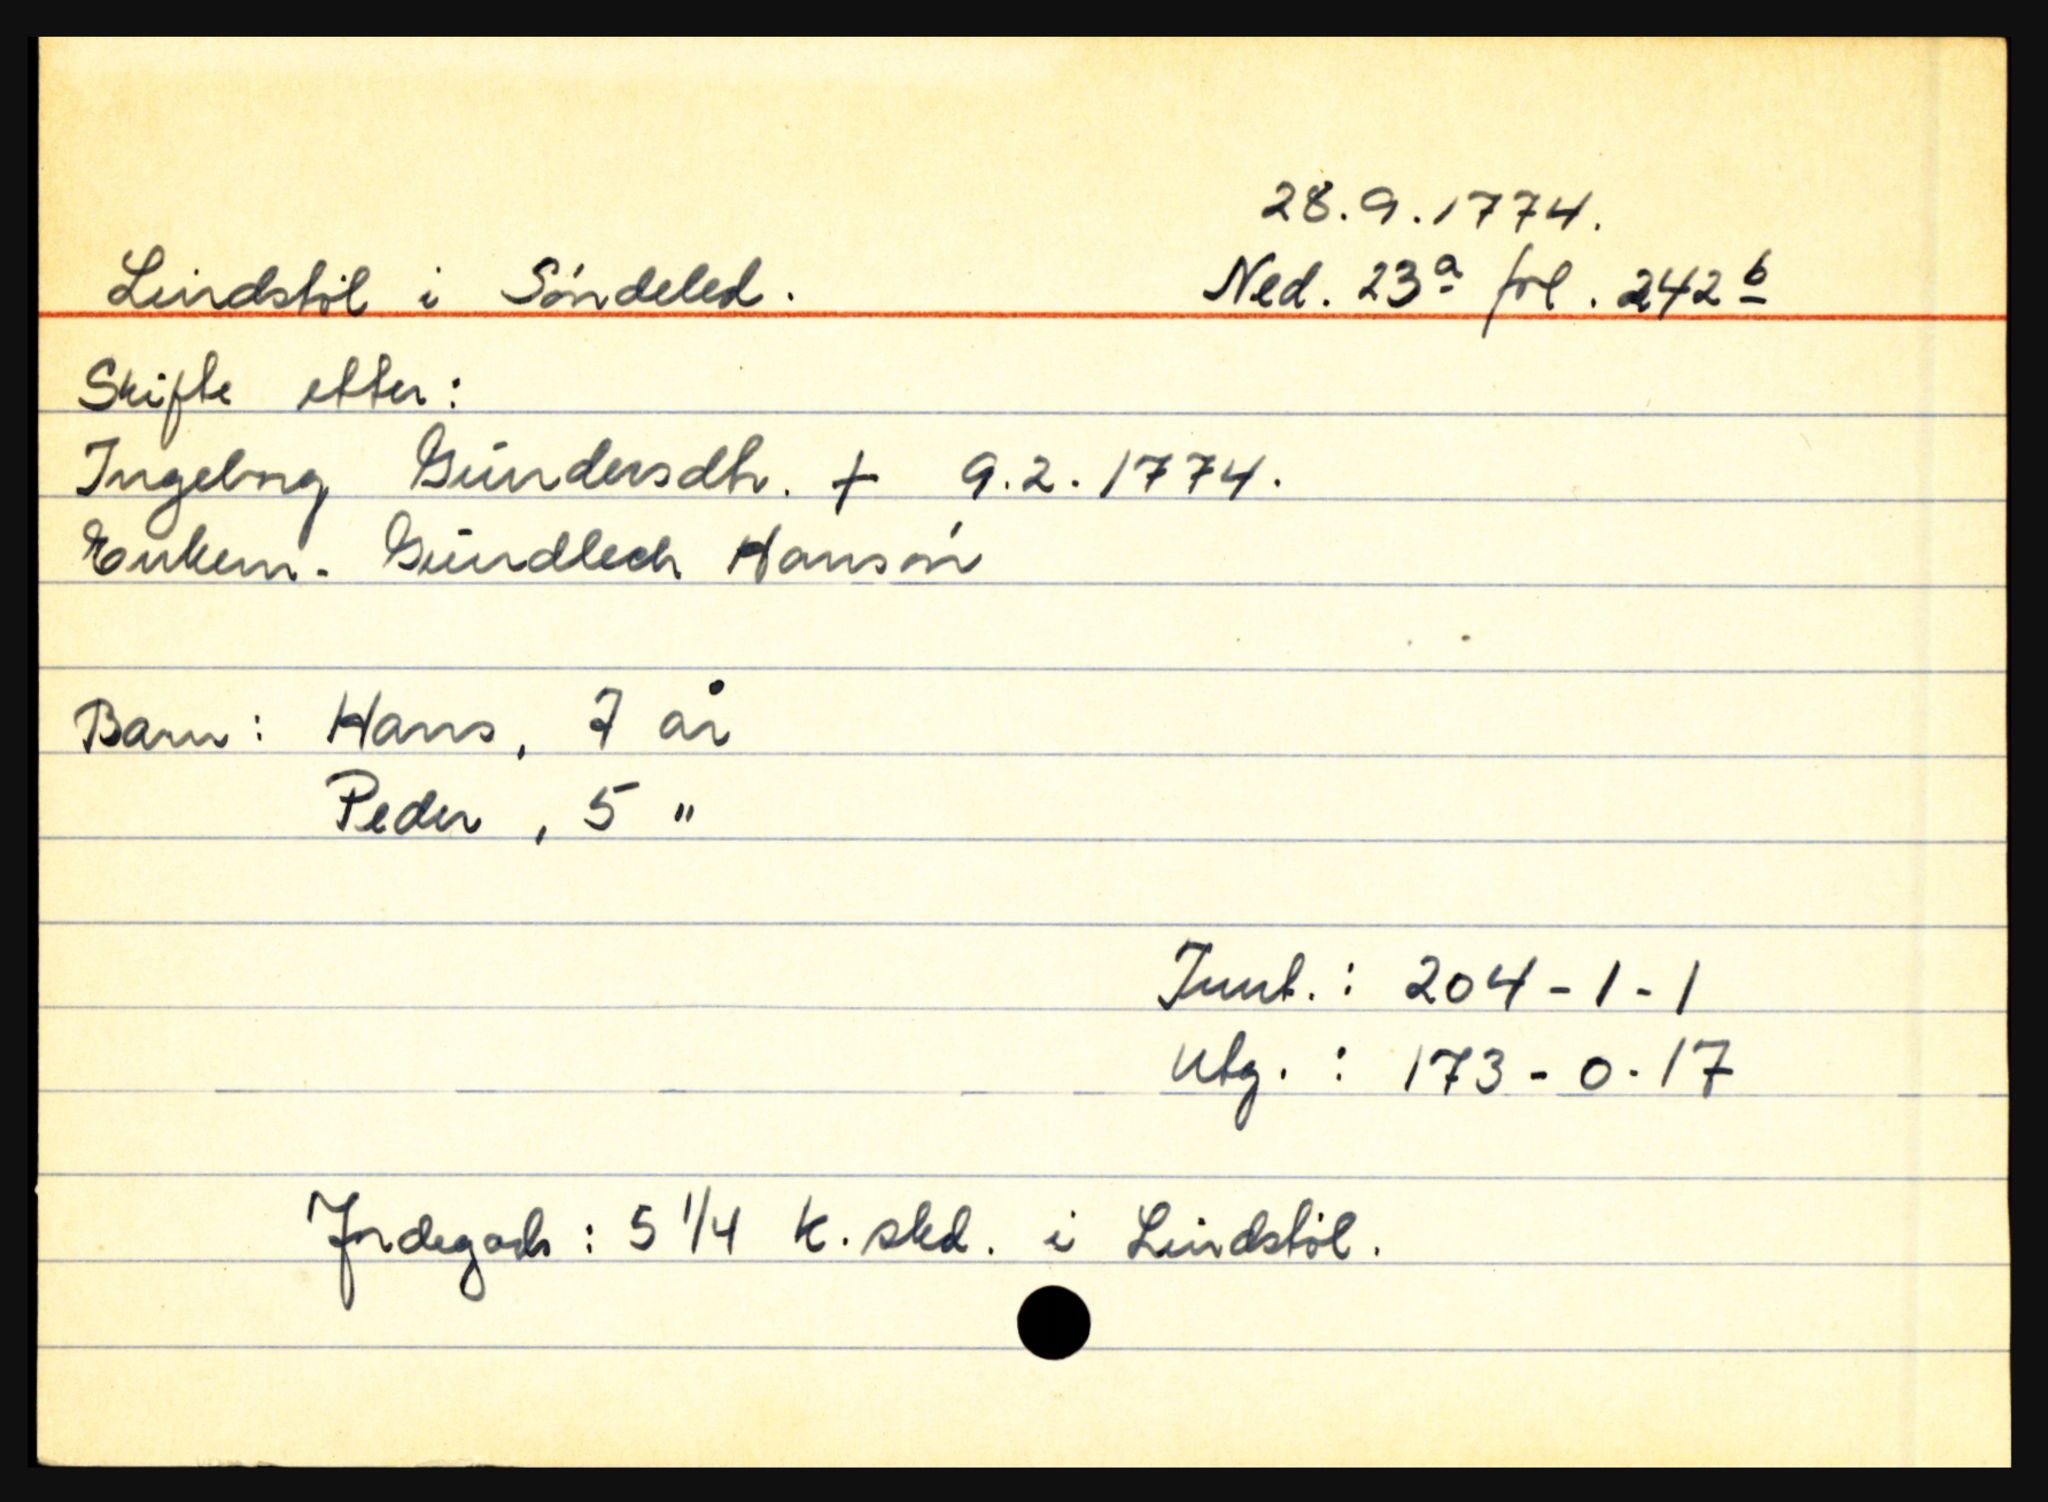 28.9.1774.
Lindstøl i Søndeled. Ned. 23a fol. 242b
Skifte etter:
Ingeborg Gundersdtr. + 9.2.1774.
Enkem. Gundlech Hansøn
Barn: Hans, 7 år
Peder, 5 "
Innt.: 204-1-1
Utg.: 173-0-17
Jordegods: 5 1/4 k.skd. i Lindstøl.